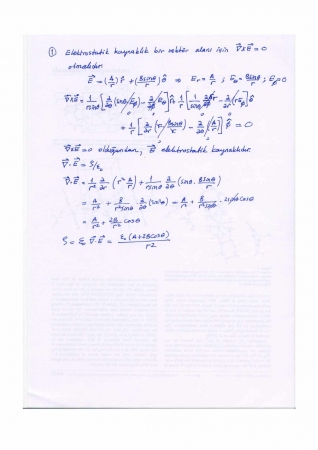 ① Elektrostatik kaynaklık bir vektör alanı için ∇⃗×E⃗ = 0
olmalıdır.
E⃗ = (A/r) r̂ + (B sinθ/r) θ̂ ⇒ E_r = A/r ; E_θ = B sinθ/r ; E_φ = 0
∇⃗×E⃗ = 1/(r sinθ) [∂/∂θ (sinθ E_φ) − ∂E_θ/∂φ] r̂ + 1/r [1/sinθ ∂E_r/∂φ − ∂/∂r (r E_φ)] θ̂
+ 1/r [∂/∂r (r B sinθ/r) − ∂/∂θ (A/r)] φ̂ = 0
∇⃗×E⃗ = 0 olduğundan, E⃗ elektrostatik kaynaklıdır.
∇⃗·E⃗ = ρ/ε₀
∇⃗·E⃗ = 1/r² ∂/∂r (r² A/r) + 1/(r sinθ) ∂/∂θ (sinθ · B sinθ/r)
= A/r² + B/(r² sinθ) · ∂/∂θ (sin²θ) = A/r² + B/(r² sinθ) · 2 sinθ cosθ
= A/r² + 2B/r² cosθ
ρ = ε₀ ∇⃗·E⃗ = ε₀ (A + 2B cosθ)/r²